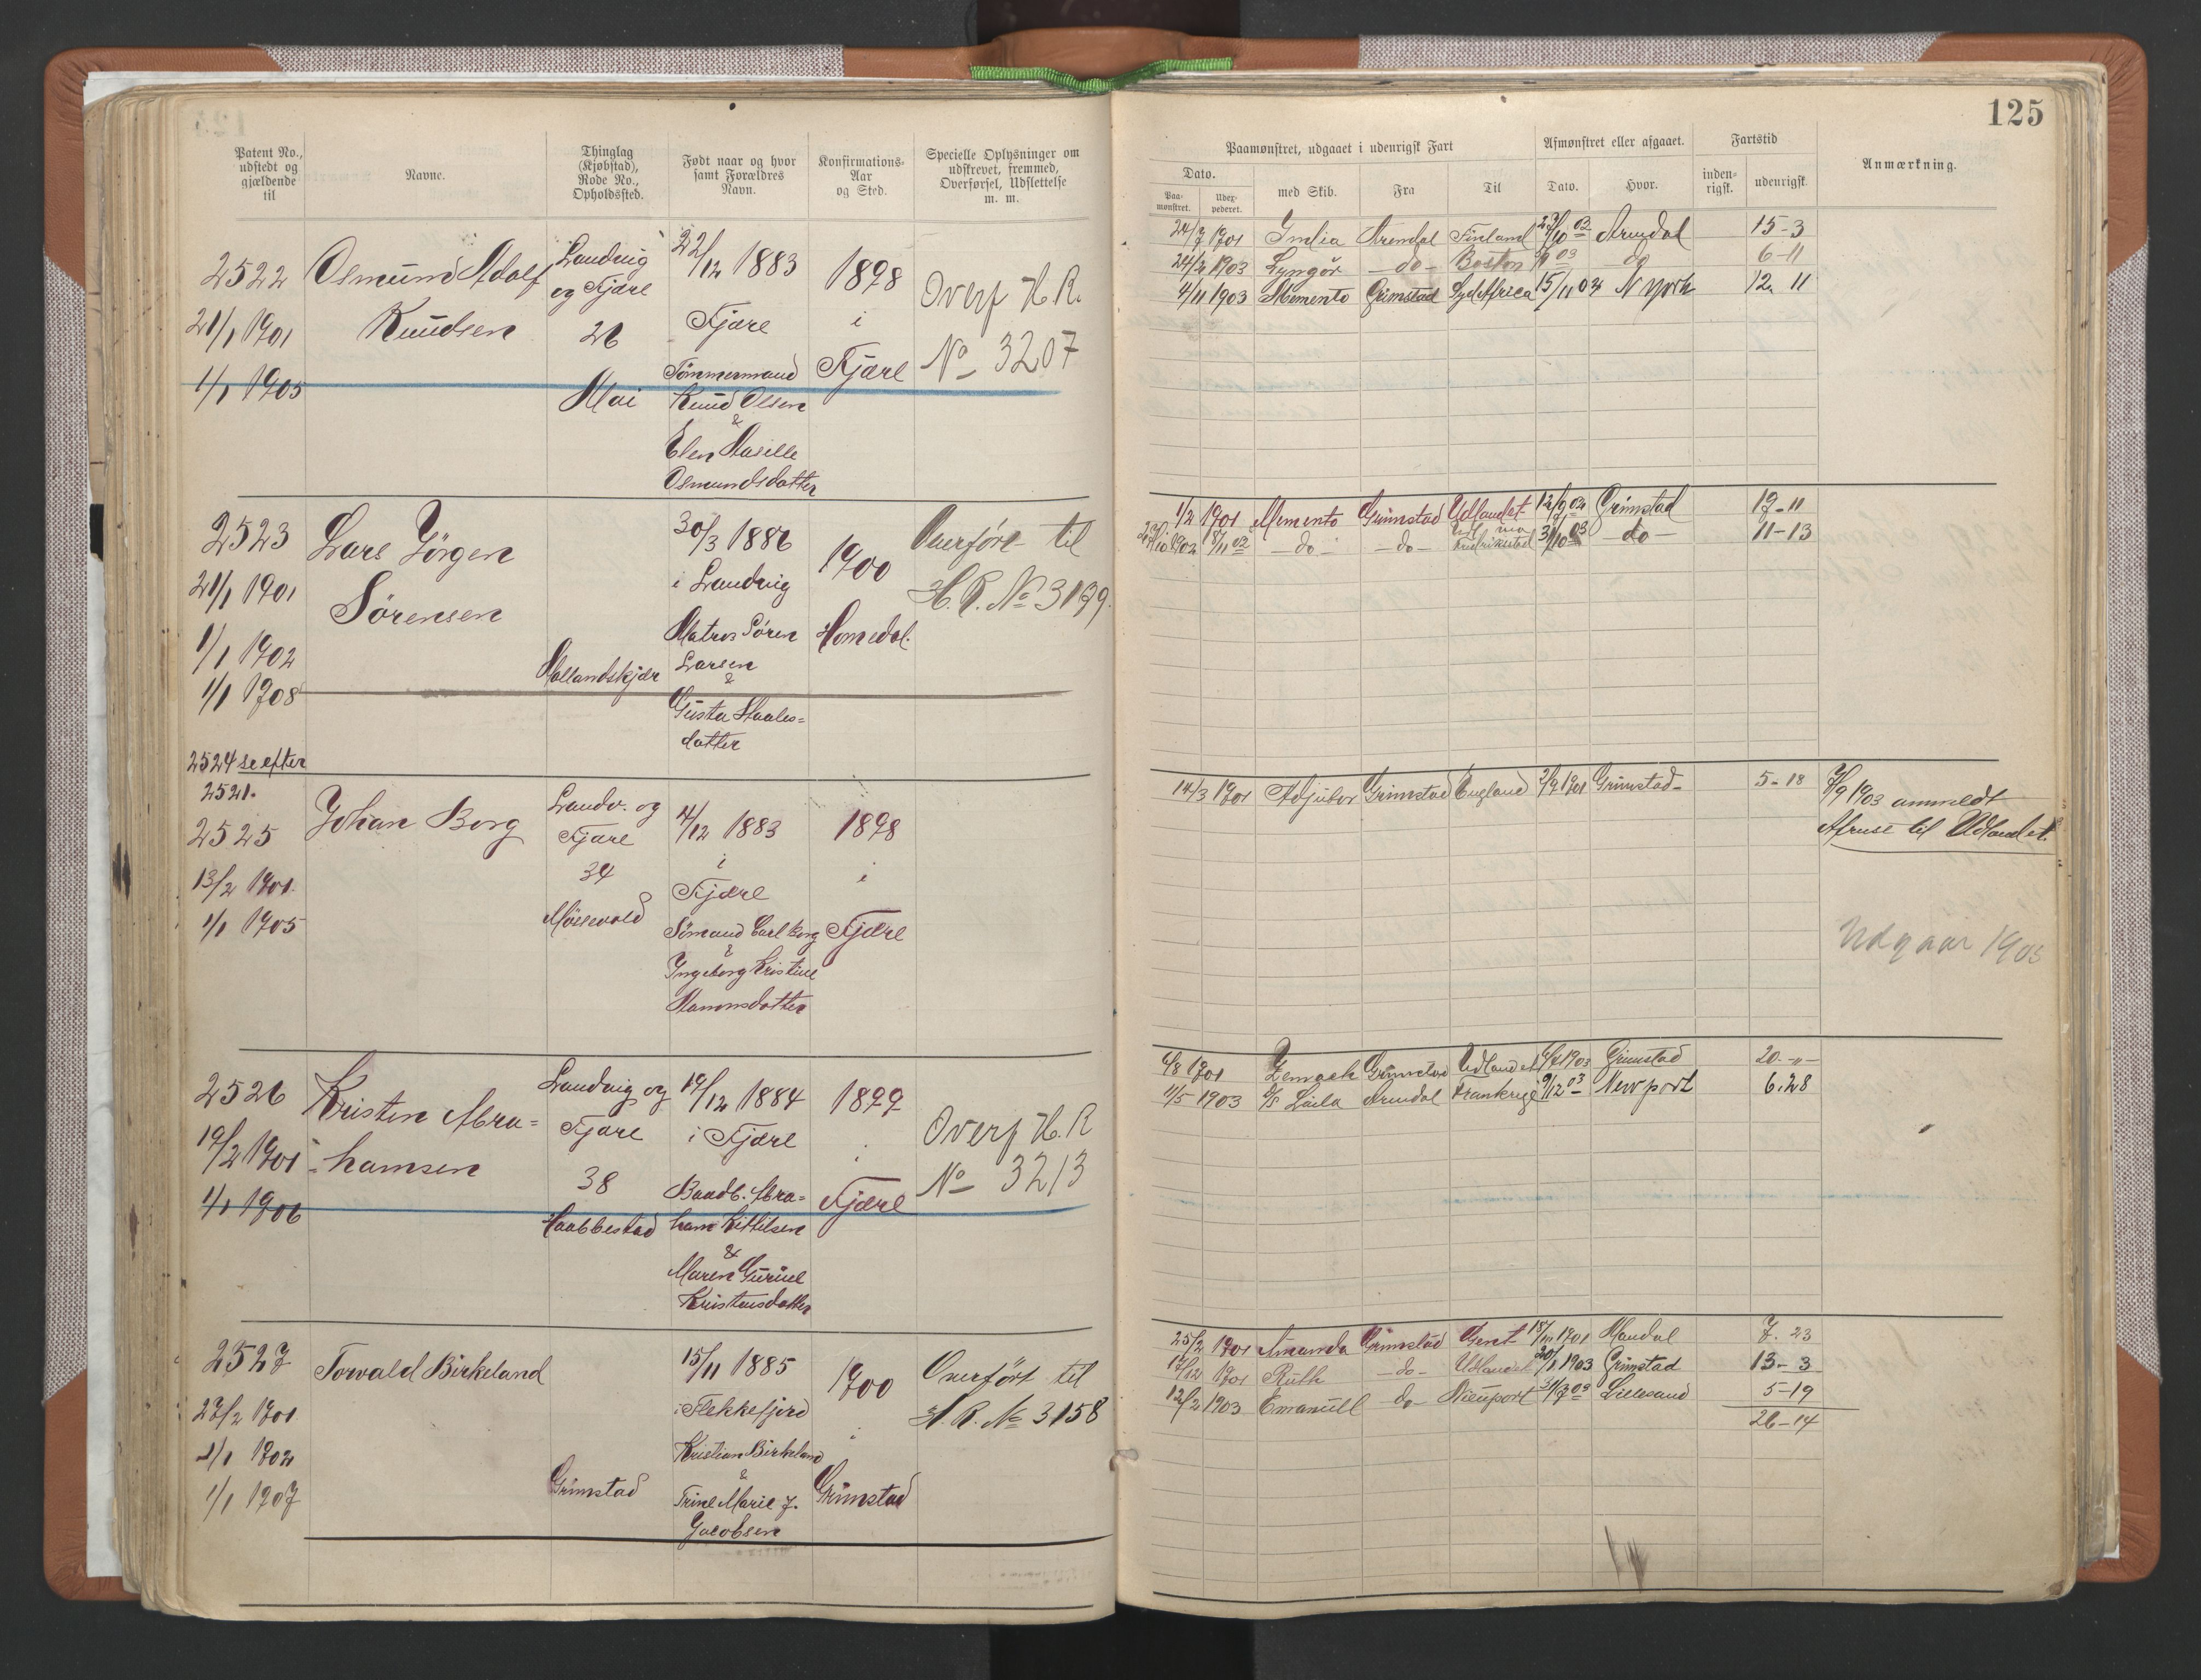 125
Patent No., udstedt og gjældende til
Navne.
Thinglag (Kjøbstad), Rode No., Opholdssted.
Født naar og hvor samt Forældres Navn.
Konfirmations-Aar og Sted.
Specielle Oplysninger om udskrevet, fremmed, Overførsel, Udslettelse m. m.
Paamønstret, udgaaet i udenrigsk Fart
Afmønstret eller afgaaet.
Fartstid
Anmærkning.
Dato.
Paa-mønstret.
Udex-pederet.
med Skib.
Fra
Til
Dato.
Hvor.
inden-rigsk.
udenrigsk.
2522
21/1 1901
1/1 1905
Osmund Adolf
Knudsen
Landvig
og Fjære
26
Moi
22/12 1883
Fjære
Tömmermand
Knud Olsen
&
Elen Masille
Osmundsdatter
1898
i
Fjære
Overf H.R.
No 3207
24/7 1901 India Arendal Finland 23/10 02 Arendal 15-3
24/2 1903 Lyngör -do- Boston 03 do 6-11
4/11 1903 Memento Grimstad Syd Africa 15/11 04 N York 12 11
2523
21/1 1901
1/1 1902
1/1 1908
Lars Jörgen
Sörensen
Hollandskjær
30/3 1886
i Landvig
Matros Sören
Larsen
&
Gusta Staales=
datter
1900
Homedal.
Overfört til
H.R. No 3199.
1/2 1901 Memento Grimstad Udlandet 12/9 02 Grimstad 19-11
23/10 1902 18/11 02 -do- -do- Fredrikstad 31/10 03 -do- 11-13
2524 se efter
2521.
2525
13/2 1901.
1/1 1905
Johan Borg
Landv. og
Fjære
34
Mössevold
14/12 1883
i
Fjære
Sömand Carl Borg
&
Ingeborg Kristine
Hammsdatter
1898
i
Fjære
14/3 1901 Adjutor Grimstad England 2/9 1901 Grimstad- 5-18
7/9 1903 anmeldt
Afreise til Udlandet.
Udgaar 1905
2526
19/2 1901
1/1 1906
Kristen Abra=
hamsen
Landvig og
Fjære
38
Haabbestad
19/12 1884
i Fjære
Baadb. Abra=
ham Kittilsen
&
Maren Gurine
Kristensdatter
1899
i
Fjære
Overf H.R
No 3213
6/8 1901 Zemach Grimstad Udlandet 1903 Grimstad 20-"-
11/5 1903 D/S Laila Arendal Frankrige 9/12 03 Newport 6.28
2527
27/2 1901
1/1 1902
1/1 1907
Torvald Birkeland
Grimstad
15/11 1885
i Flekkefjord
Kristian Birkeland
&
Trine Marie f.
Jacobsen
1900
i
Grimstad
Overfört til
H.R. No 3158
25/2 1901 Amanda Grimstad Gent 18/10 1901 Mandal 7. 23
17/12 1901 Ruth -do- Udlandet 20/1 1903 Grimstad 13-3
12/2 1903 Emanuell do- Nieuport 31/7 03 Lillesand 5-19
26-14